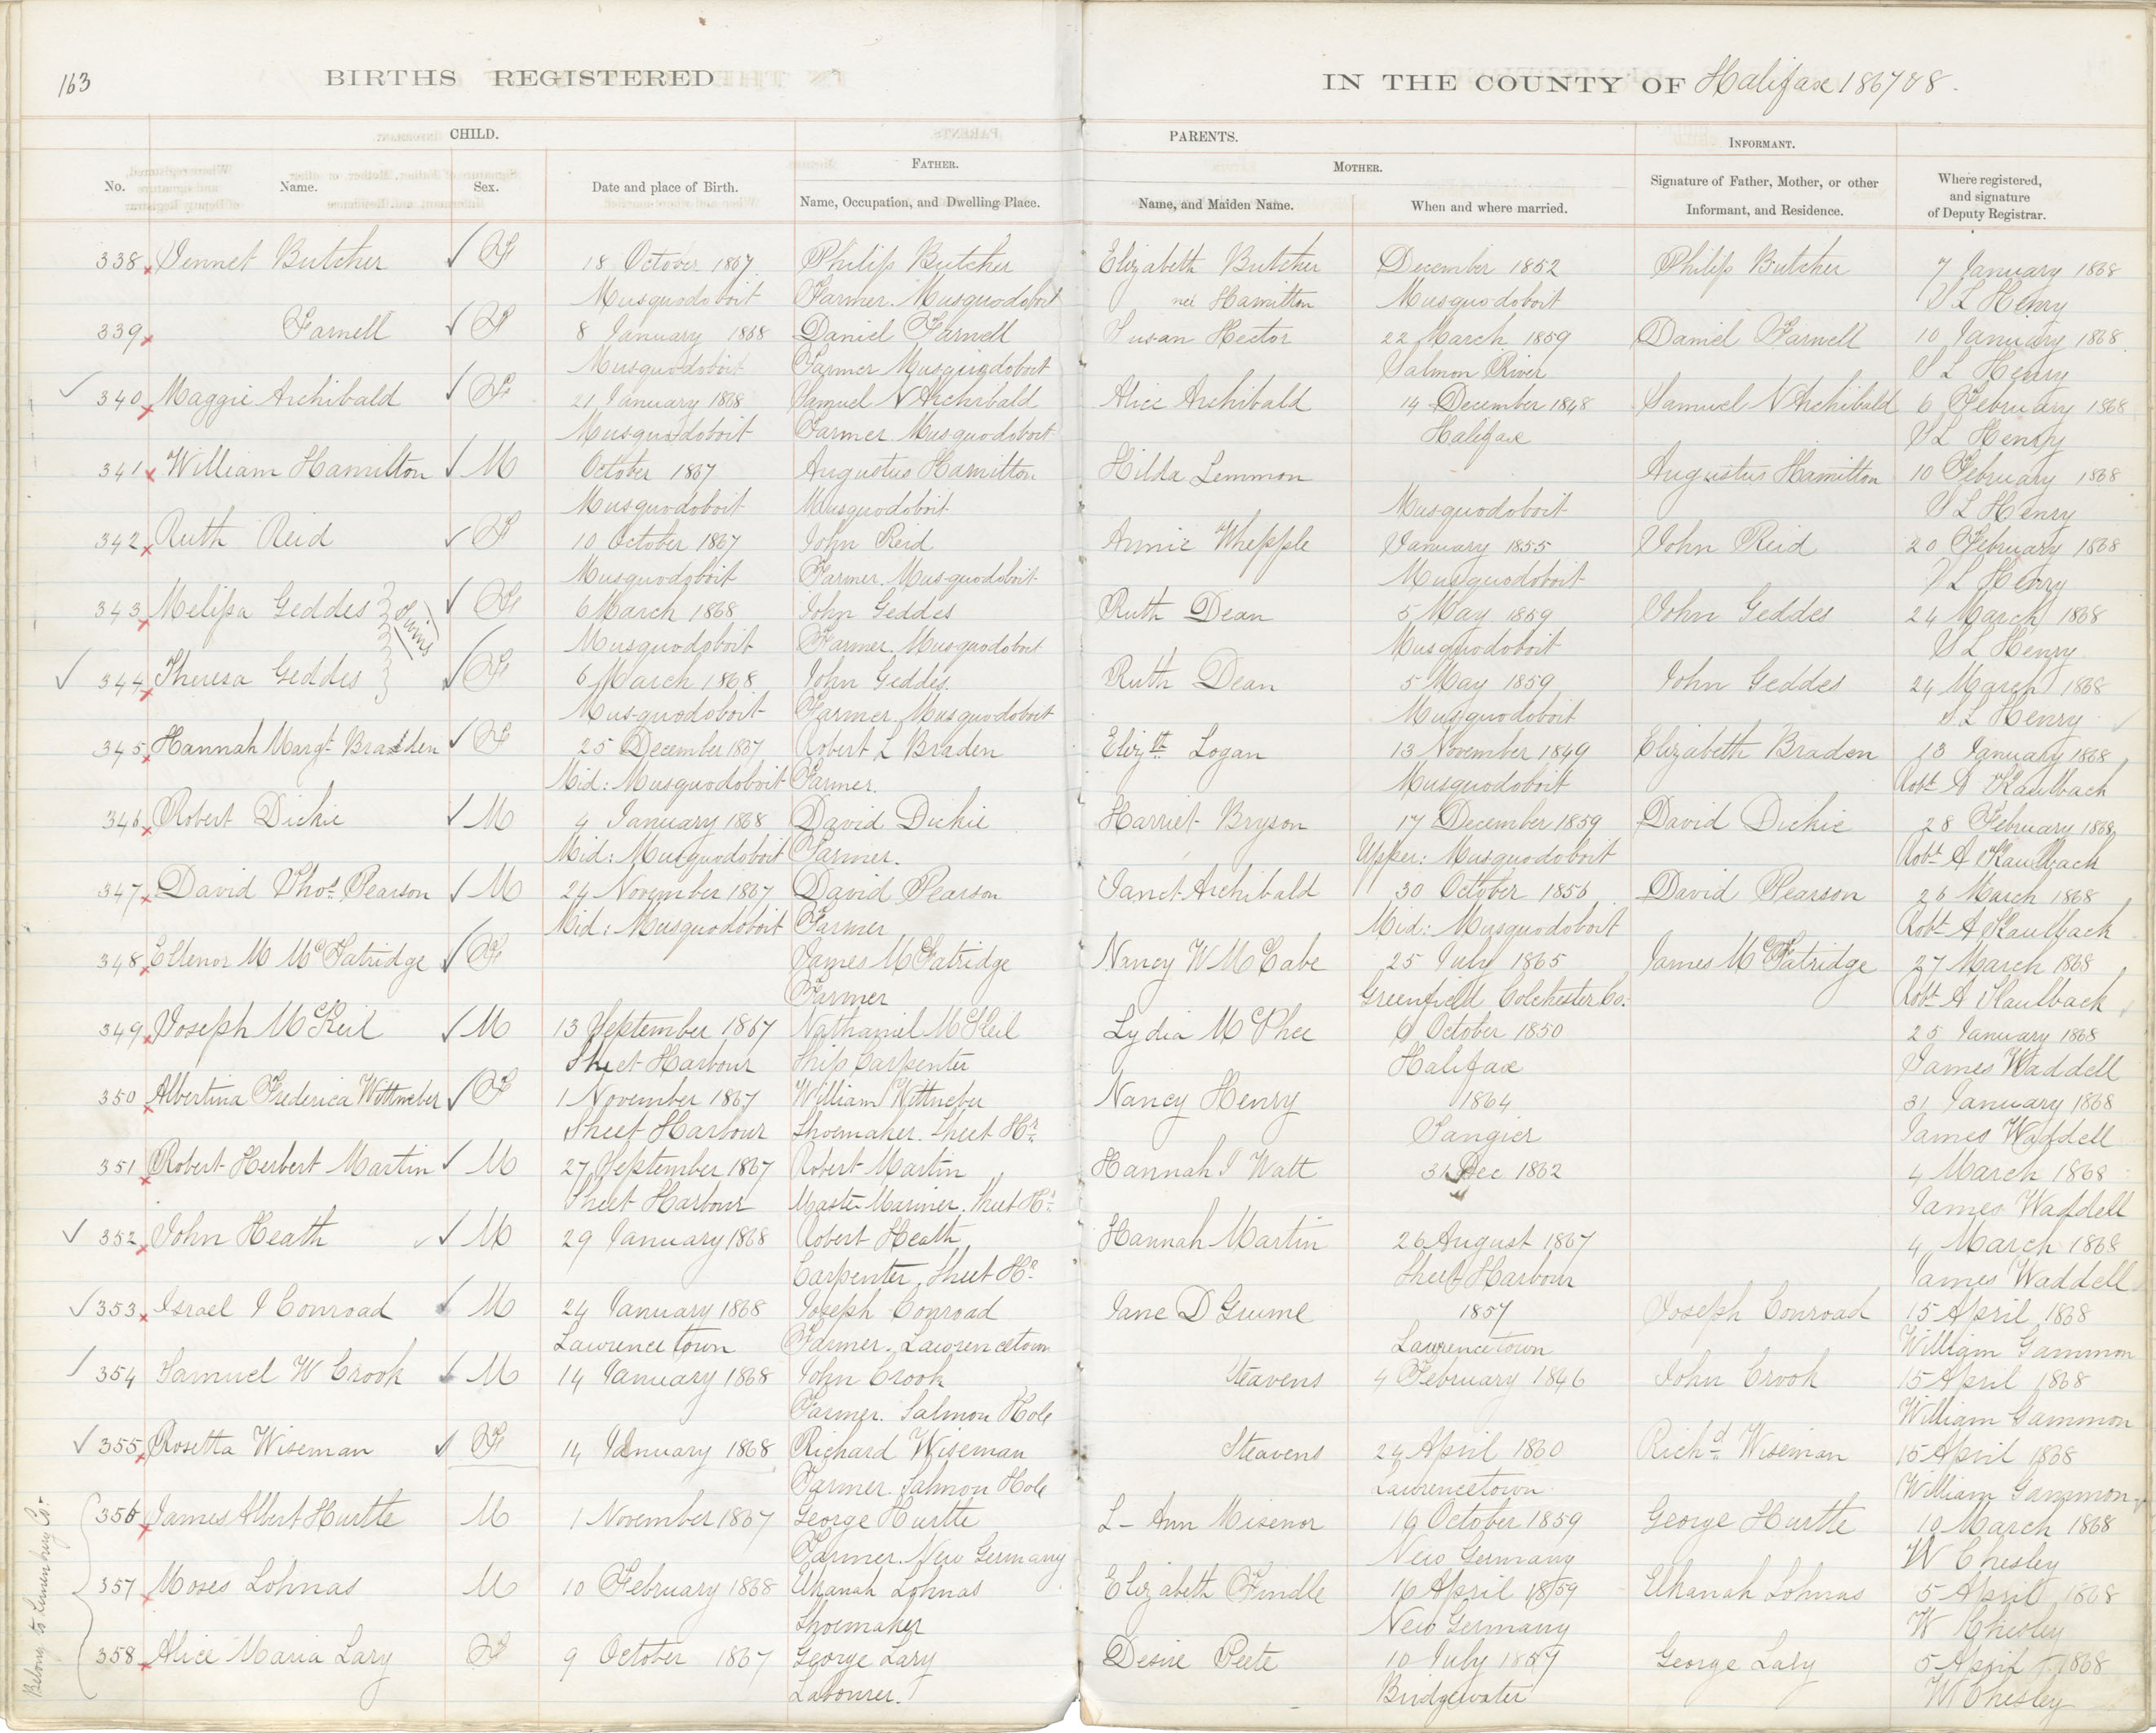 163
BIRTHS REGISTERED
IN THE COUNTY OF Halifax 1867 & 8.
CHILD.
PARENTS.
INFORMANT.
FATHER.
MOTHER.
No.
Name.
Sex.
Date and place of Birth.
Name, Occupation, and Dwelling Place.
Name, and Maiden Name.
When and where married.
Signature of Father, Mother, or other
Informant, and Residence.
Where registered,
and signature
of Deputy Registrar.
338 Jennet Butcher F 18 October 1867 Philip Butcher Elizabeth Butcher December 1852 Philip Butcher 7 January 1868
Musquodoboit Farmer. Musquodoboit neé Hamilton Musquodoboit S L Henry
339 Farnell F 8 January 1868 Daniel Farnell Susan Hector 22 March 1859 Daniel Farnell 10 January 1868
Musquodoboit Farmer Musquodoboit Salmon River S L Henry
340 Maggie Archibald F 21 January 1868 Samuel N Archibald Alice Archibald 14 December 1848 Samuel N Archibald 6 February 1868
Musquodoboit Farmer Musquodoboit Halifax S L Henry
341 William Hamilton M October 1867 Augustus Hamilton Hilda Lemmon Augustus Hamilton 10 February 1868
Musquodoboit Musquodoboit Musquodoboit S L Henry
342 Ruth Reid F 10 October 1867 John Reid Annie Whepple January 1855 John Reid 20 February 1868
Musquodoboit Farmer. Musquodoboit Musquodoboit S L Henry
343 Melissa Geddes Twins F 6 March 1868 John Geddes Ruth Dean 5 May 1859 John Geddes 24 March 1868
Musquodoboit Farmer. Musquodoboit Musquodoboit S L Henry
344 Theresa Geddes F 6 March 1868 John Geddes. Ruth Dean 5 May 1859 John Geddes 24 March 1868
Musquodoboit Farmer. Musquodoboit Musquodoboit S L Henry
345 Hannah Margt. Bradden F 25 December 1867 Robert L Braden Elizth Logan 13 November 1849 Elizabeth Braden 13 January 1868
Mid: Musquodoboit Farmer. Musquodoboit Robt A Kaulback
346 Robert Dickie M 4 January 1868 David Dickie Harriet Bryson 17 December 1859 David Dickie 28 February 1868
Mid: Musquodoboit Farmer. Upper: Musquodoboit Robt A Kaulback
347 David Thos. Pearson M 24 November 1867 David Pearson Janet Archibald 30 October 1856 David Pearson 26 March 1868
Mid: Musquodoboit Farmer Mid: Musquodoboit Robt A Kaulback
348 Ellenor M McFatridge F James McFatridge Nancy W McCabe 25 July 1865 James McFatridge 27 March 1868
Farmer Greenfield Colchester Co: Robt A Kaulback
349 Joseph McKeil M 13 September 1867 Nathaniel McKeil Lydia McPhee 6 October 1850 25 January 1868
Sheet Harbour Ship Carpenter Halifax James Waddell
350 Albertina Frederica Wittneber F 1 November 1867 William Wittneber Nancy Henry 1864 31 January 1868
Sheet Harbour Shoemaker. Sheet Hr. Tangier James Waddell
351 Robert Herbert Martin M 27 September 1867 Robert Martin Hannah J Watt 31 Dec 1862 4 March 1868
Sheet Harbour Master Mariner. Sheet Hr. James Waddell
352 John Heath M 29 January 1868 Robert Heath Hannah Martin 26 August 1867 4 March 1868
Carpenter, Sheet Hr. Sheet Harbour James Waddell
353 Israel J Conroad M 24 January 1868 Joseph Conroad Jane D Grume 1857 Joseph Conroad 15 April 1868
Lawrencetown Farmer. Lawrencetown Lawrencetown William Gammon
354 Samuel W Crook M 14 January 1868 John Crook Steavens 4 February 1846 John Crook 15 April 1868
Farmer. Salmon Hole William Gammon
355 Rosetta Wiseman F 14 January 1868 Richard Wiseman Steavens 24 April 1860 Richd. Wiseman 15 April 1868
Farmer. Salmon Hole Lawrencetown William Gammon
356 James Albert Hurtle M 1 November 1867 George Hurtle L- Ann Misenor 19 October 1859 George Hurtle 10 March 1868
Farmer. New Germany New Germany W Chesley
357 Moses Lohnas M 10 February 1868 Elkanah Lohnas Elizabeth Findle 16 April 1859 Elkanah Lohnas 5 April 1868
Shoemaker New Germany W Chesley
358 Alice Maria Lary F 9 October 1867 George Lary Desire Peete 10 July 1857 George Lary 5 April 1868
Labourer. Bridgewater W Chesley
Belong to Lunenburg Co.